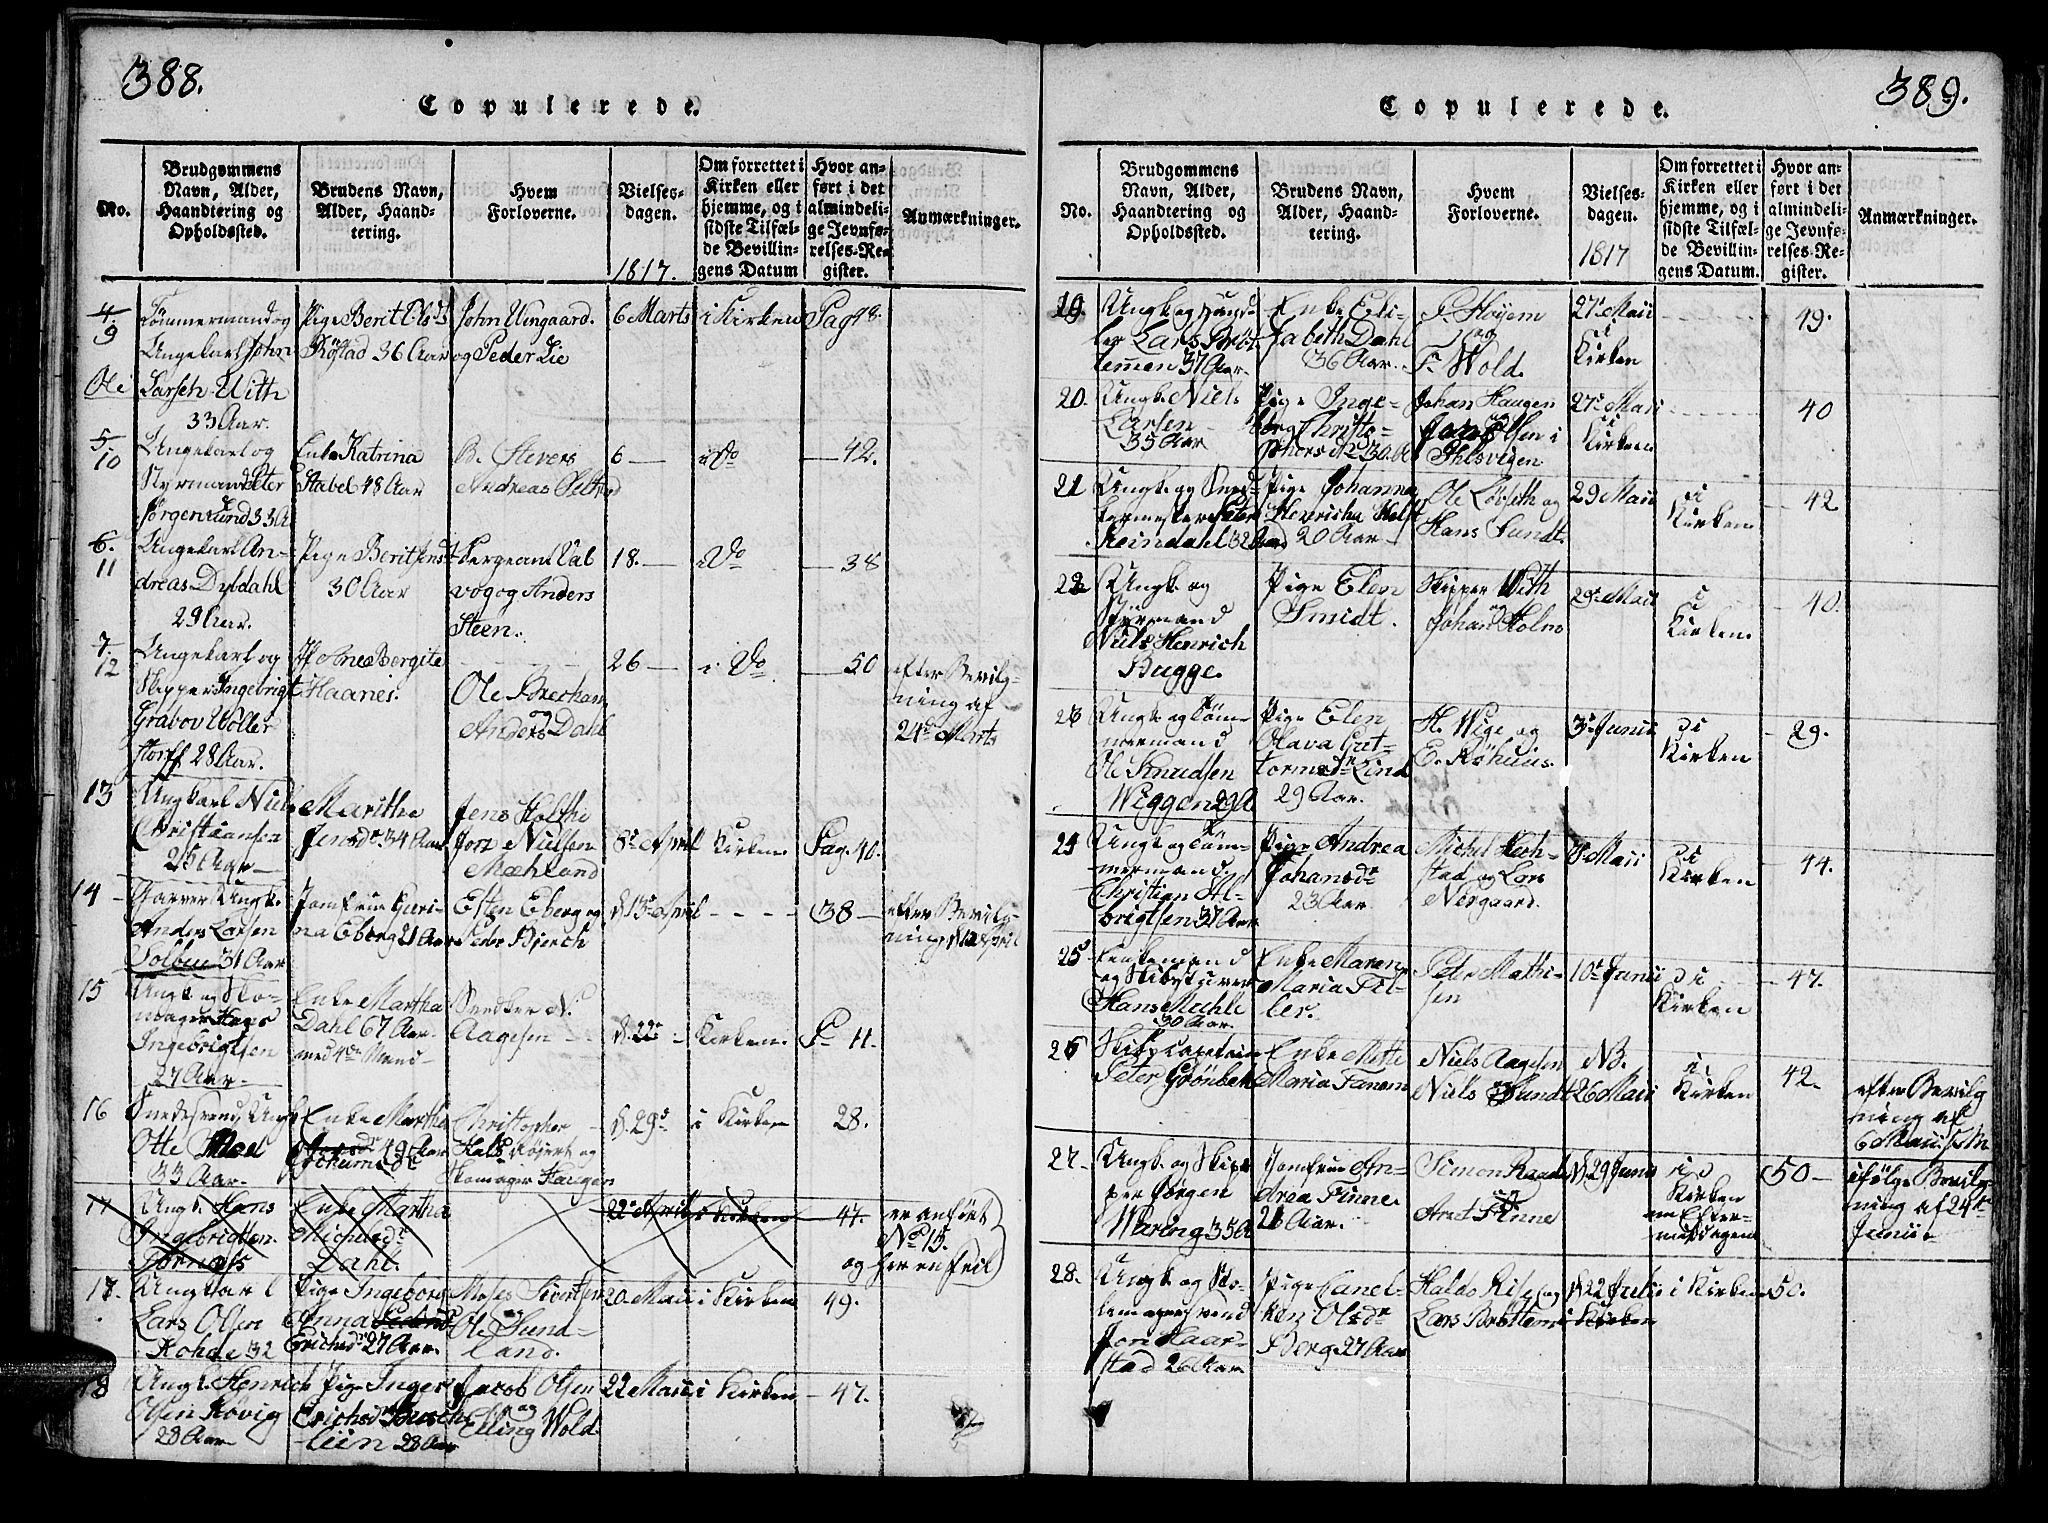 388.
Copulerede.
No.
Brudgommens
Navn, Alder,
Haandtering og
Opholdssted.
Brudens Navn,
Alder, Haand-
tering.
Hvem
Forloverne.
Vielses-
dagen.
1817.
Om forrettet i
Kirken eller
hjemme, og i
sidste Tilfæl-
de Bevillin-
gens Datum
Hvor an-
ført i det
almindeli-
ge Jevnfø-
relses-Re-
gister.
Anmærkninger.
4/9
Tömmermand og
Ungekarl John
Larsen With
33 Aar.
Pige Berit Olsdr
Röstad 36 Aar
John Vingaard.
og Peder Lie
6 Marts
i Kirken
Pag 48.
5/10
Ungekarl og
Styrmand Peter
Jörgen Lund 33 A
Enke Katrina
Stabel 48 Aar
B. Stevers
Andreas
6 —
i Do
42.
6/11
Ungekarl An-
dreas Dybdahl
29 Aar.
Pige Berit Jensd
30 Aar
Sergeant Val
vog og Anders
Steen.
18. —
i Do
38
7/12
Ungekarl og
Skipper Ingebrigt
Grabov Woller
storff 28 Aar.
Jf Anea Bergite
Haanes.
Ole Brechan
og
Anders Dahl
26 —
i Do
50
efter Bevilg-
ning af
24de Marts
13
Ungkarl Niels
Christiansen
25 Aar —
Marithe
Jensdr 34 Aar
Jens Holthe
Jon Nielsen
Mæhland
8de April
Kirken
Pag. 40.
14
Garver Ungk.
Anders Larsen
Solbue 31 Aar
Jomfrue Guri-
na Eberg 21 Aar
Esten Eberg og
Peder Bjerch
d 13de April
38 —
efter Bevilg-
ning d 12 April
15
Ungk og Sko-
mager Hans
Ingebrigtsen
27 Aar —
Enke Martha
Dahl 67 Aar
med 4de Mand
Snedker N.
Aagesen
d. 22de
Kirken
P. 11.
16
Snedkersvend, Ungk
Otte Moe
33 Aar.
Enke Martha
49 Aar
Jochumsdr
Christopher
Hals Röiert og
Skomager Haugen
d. 29de
i Kirken
28.
17
Ungk. Hans
Ingebrigtsen
Enke Martha
Michelsdr
Dahl.
22de April i Kirken
47.
er anfört
No 15.
og her en Feil
17.
Ungkarl
Lars Olsen
Rohde 32
Pige Ingeborg
Anna
Erichsdr 27 Aar.
Moses Sivertsen
og
Ole Sund-
land.
20. Maii
i Kirken
49.
18
Ungk. Henrich
Olsen Kövig
28 Aar
Pige Inger
Erichsdr
lien 28 Aar
Jacob Olsen
og
Elling Wold
22 Maii
i Kirken
47.
389.
Copulerede.
No.
Brudgommens
Navn, Alder,
Haandtering og
Opholdssted.
Brudens Navn,
Alder, Haand-
tering.
Hvem
Forloverne.
Vielses-
dagen.
1817
Om forrettet i
Kirken eller
hjemme, og i
sidste Tilfæl-
de Bevillin-
gens Datum.
Hvor an-
ført i det
almindeli-
ge Jevnfø-
relses-Re-
gister.
Anmærkninger.
19.
Ungk og Hand-
ler Lars Bröt-
temmen 37 Aar.
Enke Eli-
sabeth Dahl
36 Aar.
J. Höyem
og
F. Wold.
27de Maii
i
Kirken
49.
20.
Ungk. Niels
Larsen
35 Aar
Pige Inge-
borg Christo-
phersdr 30 A
Johan Haugen
Jon Olsen i
Ihlsvigen
27de Maii
i
Kirken
40
21
Ungk og Sned-
kermester Peter
Reindahl 32 Aar
Pige Johanna
Henricha Holst
20 Aar
Ole Lövseth og
Hans Sundt.
29 Maii
i
Kirken
42
22
Ungk og
Styrmand
Niels Henrich
Bugge.
Pige Elen
Smidt.
Skipper With
og
Johan Holm
29de Maii
i
Kirken
40.
23
Ungk og Töm-
mermand
Ole Knudsen
Wiggen 29 A
Pige Elen
Olava Gut-
tormsdr Lind
29 Aar.
H. Wige og
E. Röhuus
3de Junii
i
Kirken
29.
24
Ungk og Töm-
mermand
Christian Al-
brigtsen 37 Aar
Pige Andrea
Johansdr
23 Aar
Michel Hech-
stad og Lars
Nesgaard.
8 Maii
i
Kirken
44.
25
Enkemand
og Skibstyrer
Hans Muhle
30 Aar.
Enke Maren
Maria Pil-
ler.
Peter Mathi-
sen
10de Junii
i
Kirken
47.
26
Skibscaptein
Peter Grönbeh
Enke Mette
Maria Fanem
Niels Aagesen
Niels Sundt
NB.
26 Maii
i
Kirken
42.
efter Bevilg
ning af
6 Maii s. M
27.
Ungk og Skip-
per Jörgen
Waring 35 A
Jomfrue An-
drea Finne.
26 Aar.
Simon Raade
Arnt Finne
d 29 Junii
i
Kirken
om Efter-
middagen
50 —
ifölge Bevilg-
ning af 24de
Junii
28.
Ungk og Sko-
magersvend
Jon Haar-
stad 26 Aar
Pige Canel-
ken Olsdr
Berg 27 Aar
Haldo Rise og
Lars Bröttem
d 22 Juli
i Kirken
50.